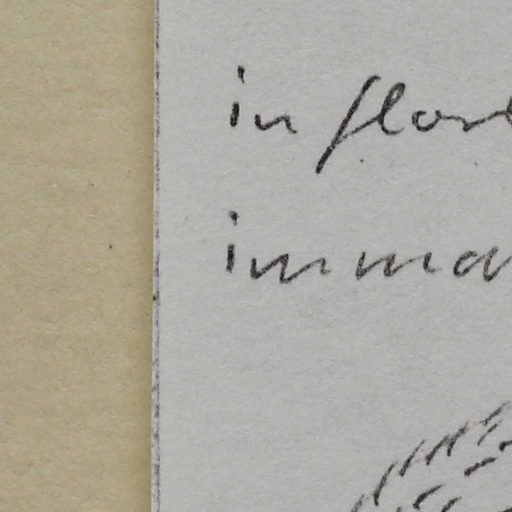 in flor
imma